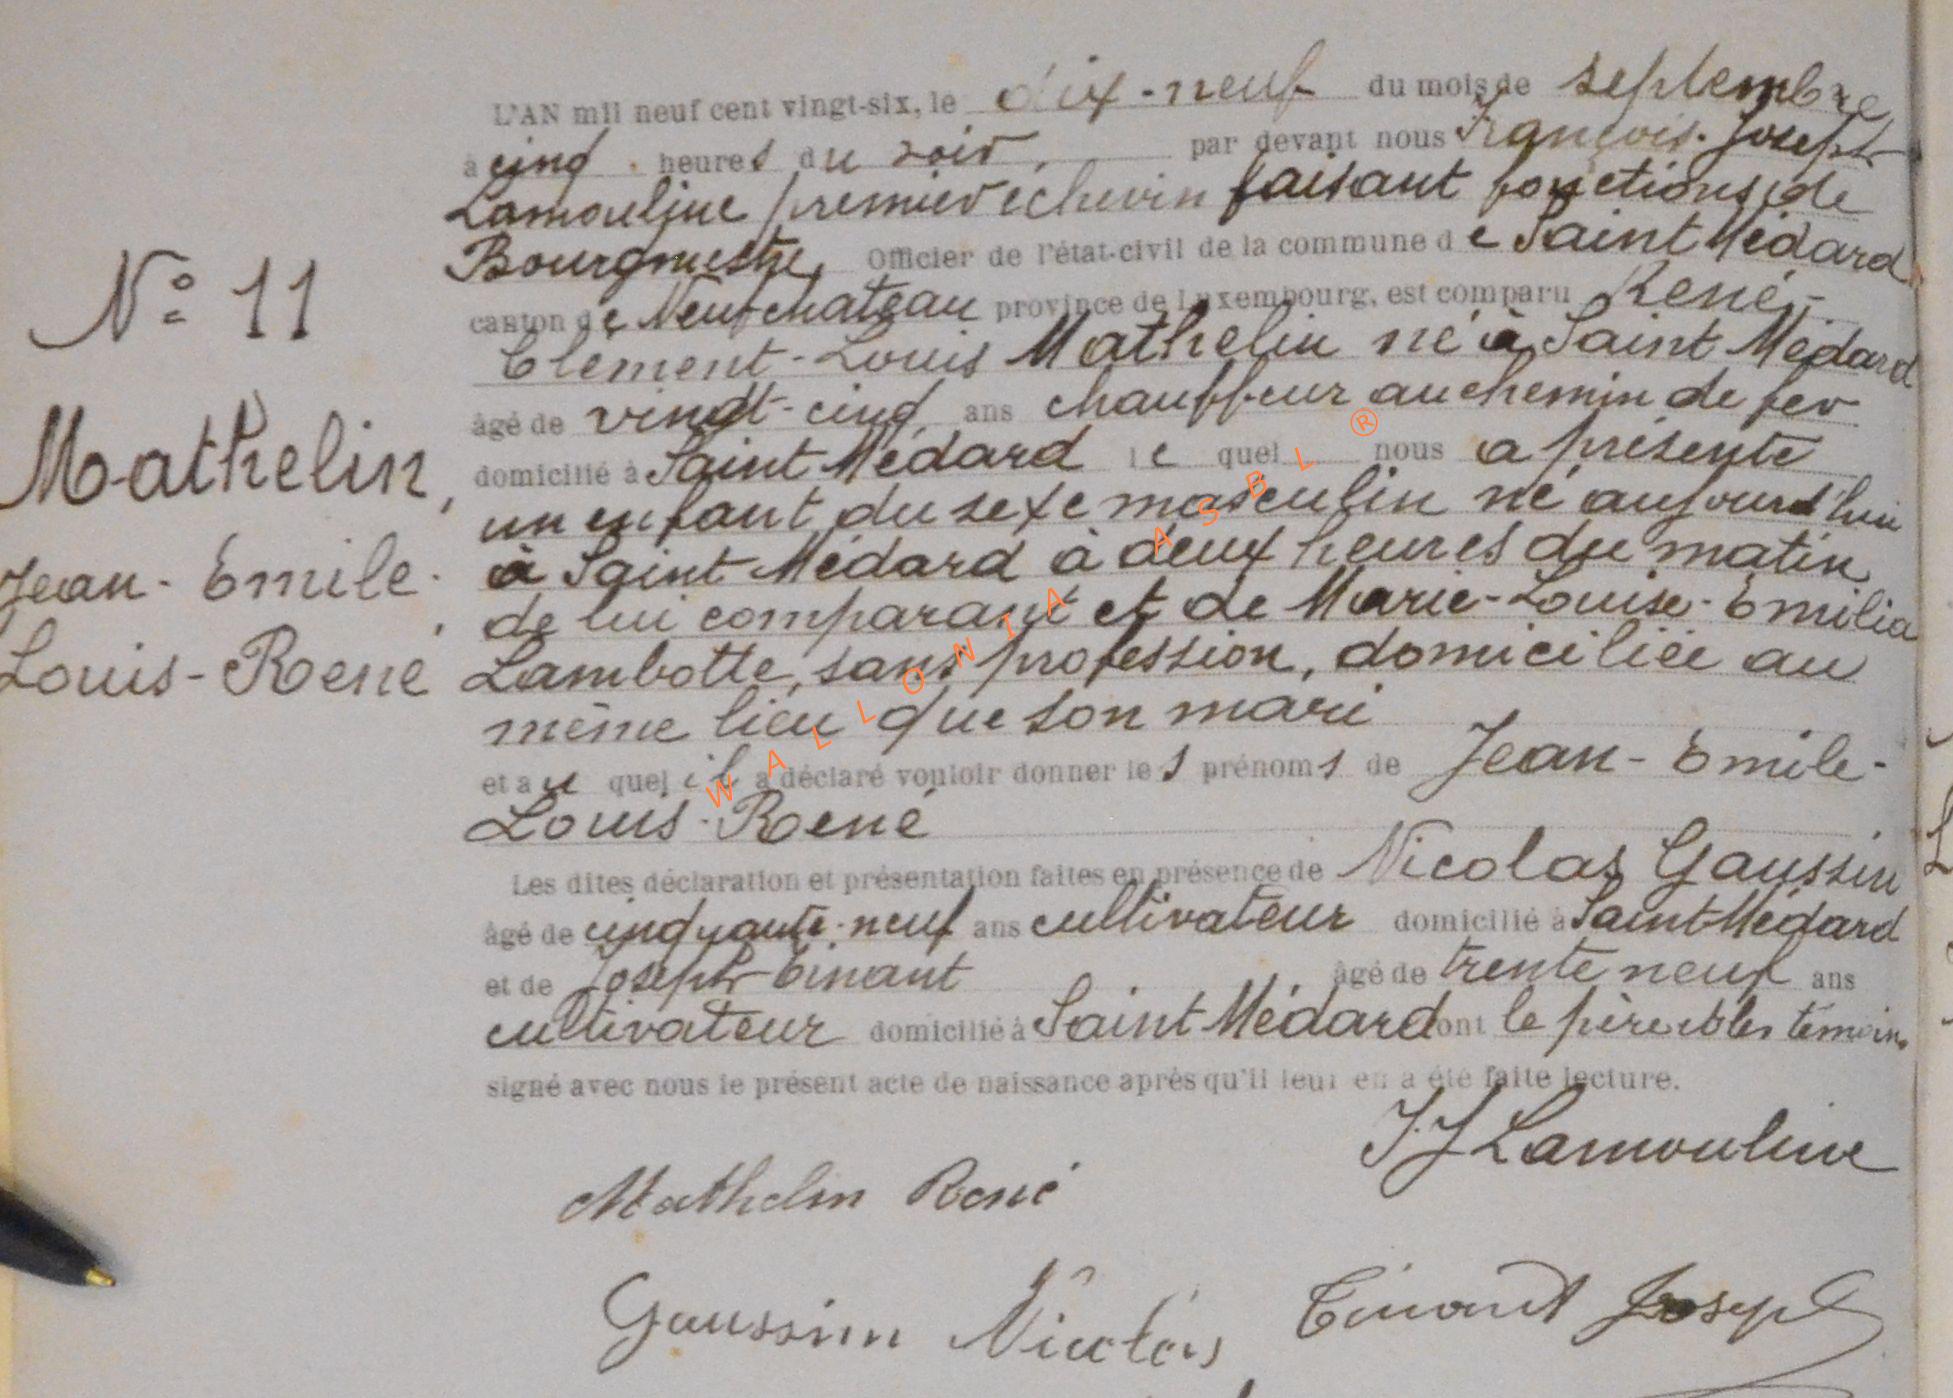 L'AN mil neuf cent vingt-six, le dix-neuf du mois de septembre
à cinq heures du soir, par devant nous François-Joseph
Lamouline premier échevin faisant fonctions de
Bourgmestre, Officier de l'état-civil de la commune de Saint Médard
canton de Neufchateau province de Luxembourg, est comparu René-
Clément-Louis Mathelin né à Saint Médard
âgé de vingt-cinq ans chauffeur au chemin de fer
domicilié à Saint Médard le quel nous a présenté
un enfant du sexe masculin né aujourd'hui
à Saint Médard à deux heures du matin
de lui comparant et de Marie-Louise-Emilia
Lambotte, sans profession, domiciliée au
même lieu que son mari
et au quel il a déclaré vouloir donner les prénoms de Jean-Emile-
Louis-René
Les dites déclaration et présentation faites en présence de Nicolas Gaussin
âgé de cinquante-neuf ans cultivateur domicilié à Saint-Médard
et de Joseph Tinant âgé de trente neuf ans
cultivateur domicilié à Saint Médard ont le père et les témoins
signé avec nous le présent acte de naissance après qu'il leur en a été faite lecture.
N° 11
Mathelin,
Jean-Emile-
Louis-René
J.J Lamouline
Mathelin René
Gaussin Nicolas Tinant Joseph
WALLONIA ASBL ®